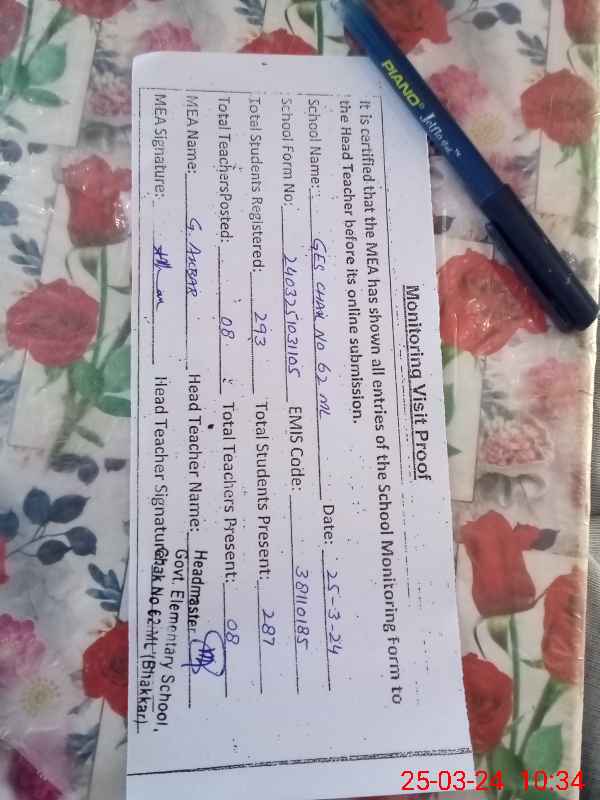 Monitoring Visit Proof
It is certified that the MEA has shown all entries of the School Monitoring Form to
the Head Teacher before its online submission.
School Name: GES CHAK NO 62 ML Date: 25-3-24
School Form No: 2403251031105 EMIS Code: 38110185
Total Students Registered: 293 Total Students Present: 287
Total TeachersPosted: 08 Total Teachers Present: 08
MEA Name: G. AKBAR Head Teacher Name: Headmaster
Govt. Elementary School,
MEA Signature: Head Teacher Signature: Chak No 62-ML (Bhakkar)
PIANO
25-03-24 10:34